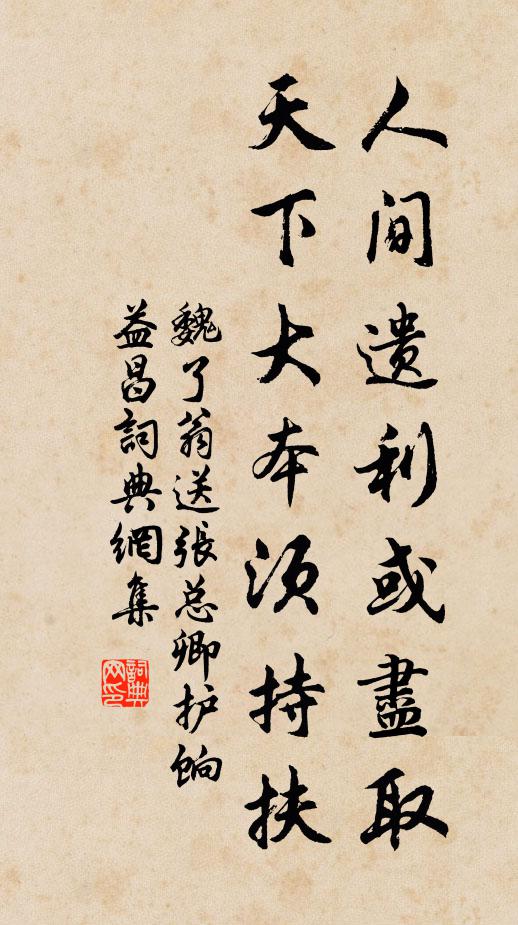 人间遗利或盡取
天下大本须持扶
魏了翁送張总卿护饷
益昌詞典網集
詞典网印